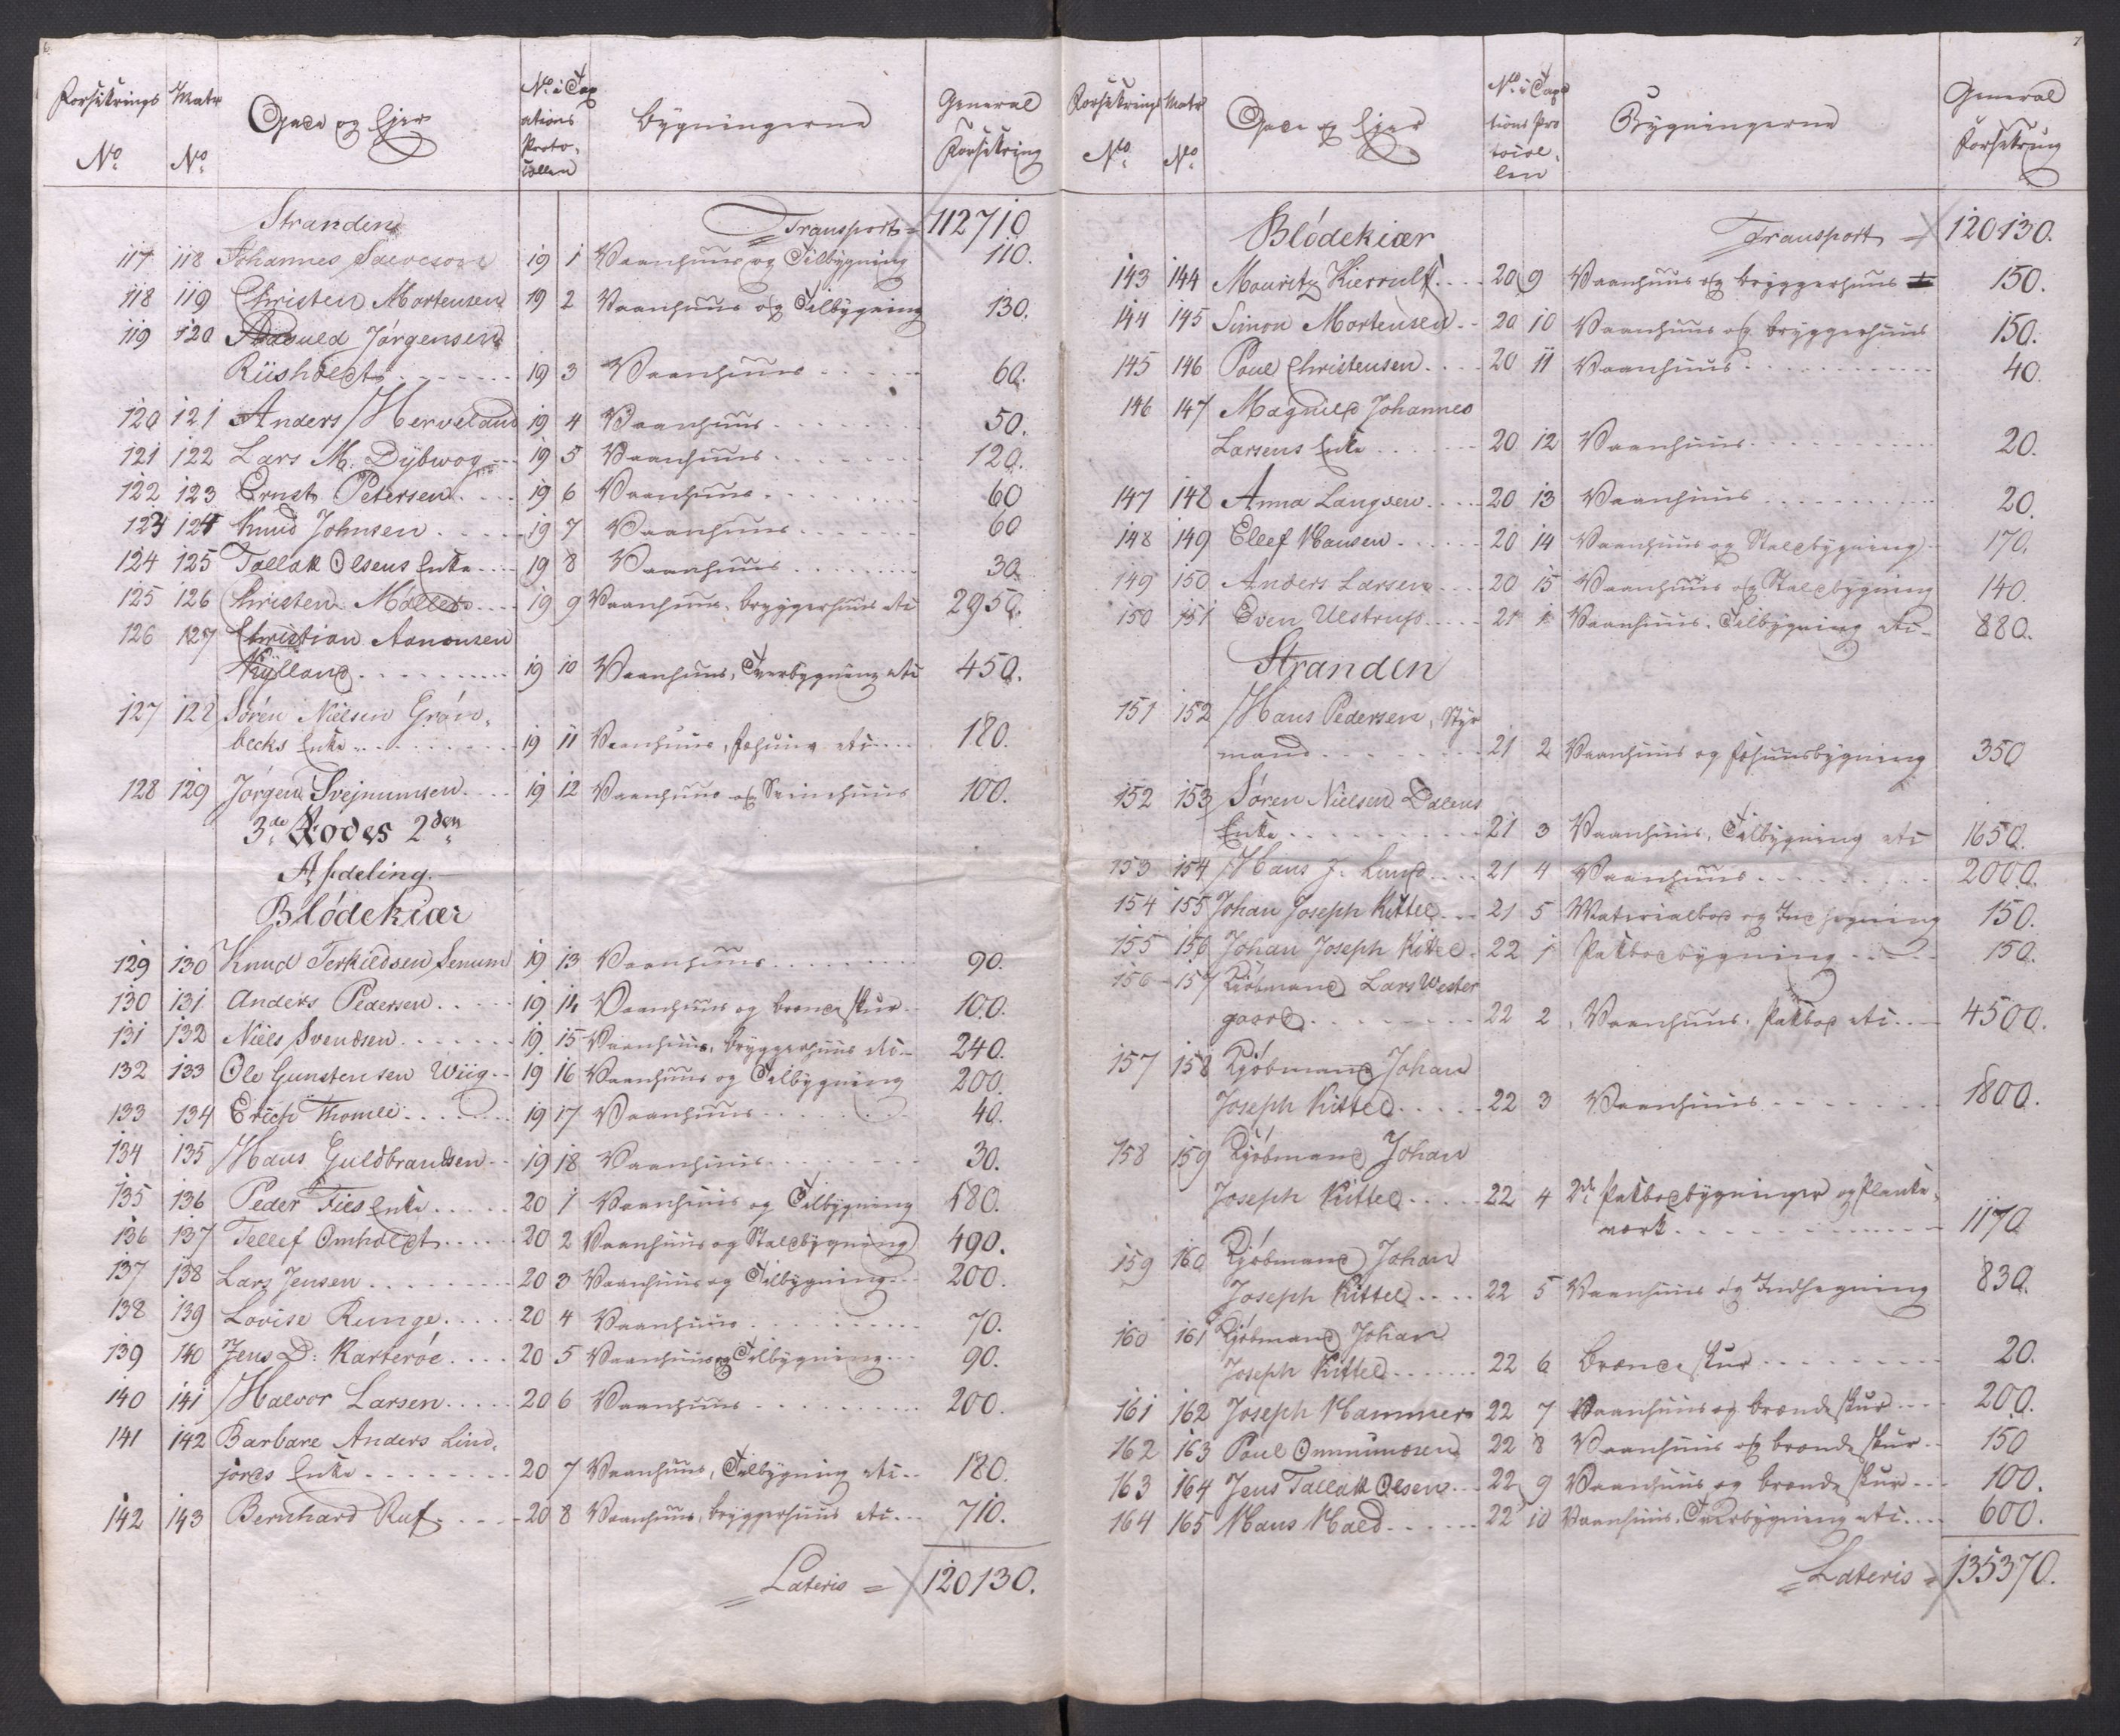 6.
Forsikrings No. | Matr No. | Gade og Ejer | No. i Tax ations Proto- collen | Bygningerne | General Forsikring
Stranden | Transport = 112710
117 118 Johannes Salvesøn 19 1 Vaanhuus og Tilbygning 110.
118 119 Christen Mortensen 19 2 Vaanhuus og Tilbygning 130.
119 120 Jørgensen
Riisholdt 19 3 Vaanhuus 60.
120 121 Anders Herveland 19 4 Vaanhuus 50.
121 122 Lars M. Dybwog 19 5 Vaanhuus 120.
122 123 Ernst Petersen 19 6 Vaanhuus 60
123 124 Knud Johnsen 19 7 Vaanhuus 60
124 125 Tallak Olsens Enke 19 8 Vaanhuus 30.
125 126 Christen Møller 19 9 Vaanhuus, bryggerhuus etc 2950.
126 127 Christian Aanonsen
Kylland 19 10 Vaanhuus, Tverbygning etc 450.
127 128 Søren Nielsen Grøn-
becks Enke 19 11 Vaanhuus, etc 180.
128 129 Jørgen Svejnumsen 19 12 Vaanhuus og 100.
3de Rodes 2den
Afdeling.
Blødekiær
129 130 Knud Terkildsen Senum 19 13 Vaanhuus 90.
130 131 Anders Pedersen 19 14 Vaanhuus og brændeskur 100.
131 132 Niels Svendsen 19 15 Vaanhuus, bryggerhuus etc 240.
132 133 Ole Gunstensen Wiig 19 16 Vaanhuus og Tilbygning 200.
133 134 Erich Thomle 19 17 Vaanhuus 40.
134 135 Hans Guldbrandsen 19 18 Vaanhuus 30.
135 136 Peder Fies Enke 20 1 Vaanhuus og Tilbygning 180.
136 137 Tellef Omholdt 20 2 Vaanhuus og Staldbygning 490.
137 138 Lars Jensen 20 3 Vaanhuus og Tilbygning 200.
138 139 Lovise Runge 20 4 Vaanhuus 70.
139 140 Jens D: Karterøe 20 5 Vaanhuus og Tilbygning 90.
140 141 Halvor Larsen 20 6 Vaanhuus 200.
141 142 Barbare Anders Lind-
jords Enke 20 7 Vaanhuus, Tilbygning etc 180.
142 143 Bernhard Ruf 20 8 Vaanhuus, bryggerhuus etc 710.
Lateris = 120130.
7
Forsikrings No. | Matr No. | Gade og Ejer | No. i Taxa tions Pro tocol- len | Bygningerne | General Forsikring
Blødekiær | Transport = 120130.
143 144 Mouritz Kierulf 20 9 Vaanhuus og bryggerhuus 150.
144 145 Simon Mortensen 20 10 Vaanhuus og bryggerhuus 150.
145 146 Poul Christensen 20 11 Vaanhuus 40.
146 147 Magnild Johannes
Larsens Enke 20 12 Vaanhuus 20.
147 148 Anna Langsen 20 13 Vaanhuus 20.
148 149 Ellef Hansen 20 14 Vaanhuus og Staldbygning 170.
149 150 Anders Larsen 20 15 Vaanhuus og Staldbygning 140.
150 151 Even Ulstrup 21 1 Vaanhuus, Tilbygning etc 880.
Stranden
151 152 Hans Pedersen, Styr
mand 21 2 Vaanhuus og bygning 350
152 153 Søren Nielsen Dalens
Enke 21 3 Vaanhuus, Tilbygning etc 1650.
153 154 Hans J. Lund 21 4 Vaanhuus 2000.
154 155 Johan Joseph Kittel 21 5 Materialbod og Indhegning 150.
155 156 Johan Joseph Kittel 22 1 Pakbodbygning 150.
156 157 Kjøbmand Lars Wester
gaard 22 2 Vaanhuus, Pakbod etc 4500.
157 158 Kjøbmand Johan
Joseph Kittel 22 3 Vaanhuus 1800.
158 159 Kjøbmand Johan
Joseph Kittel 22 4 2de Pakbodbygninger og Planke-
værk 1170
159 160 Kjøbmand Johan
Joseph Kittel 22 5 Vaanhuus og Indhegning 830.
160 161 Kjøbmand Johan
Joseph Kittel 22 6 brændeskur 20.
161 162 Joseph Hammer 22 7 Vaanhuus og brændeskur 200.
162 163 Poul Ommundsen 22 8 Vaanhuus og brændeskur 150
163 164 Jens Tallak Olsen 22 9 Vaanhuus og brændeskur 100.
164 165 Hans Hald 22 10 Vaanhuus, Tverbygning etc 600.
Lateris = 135370.